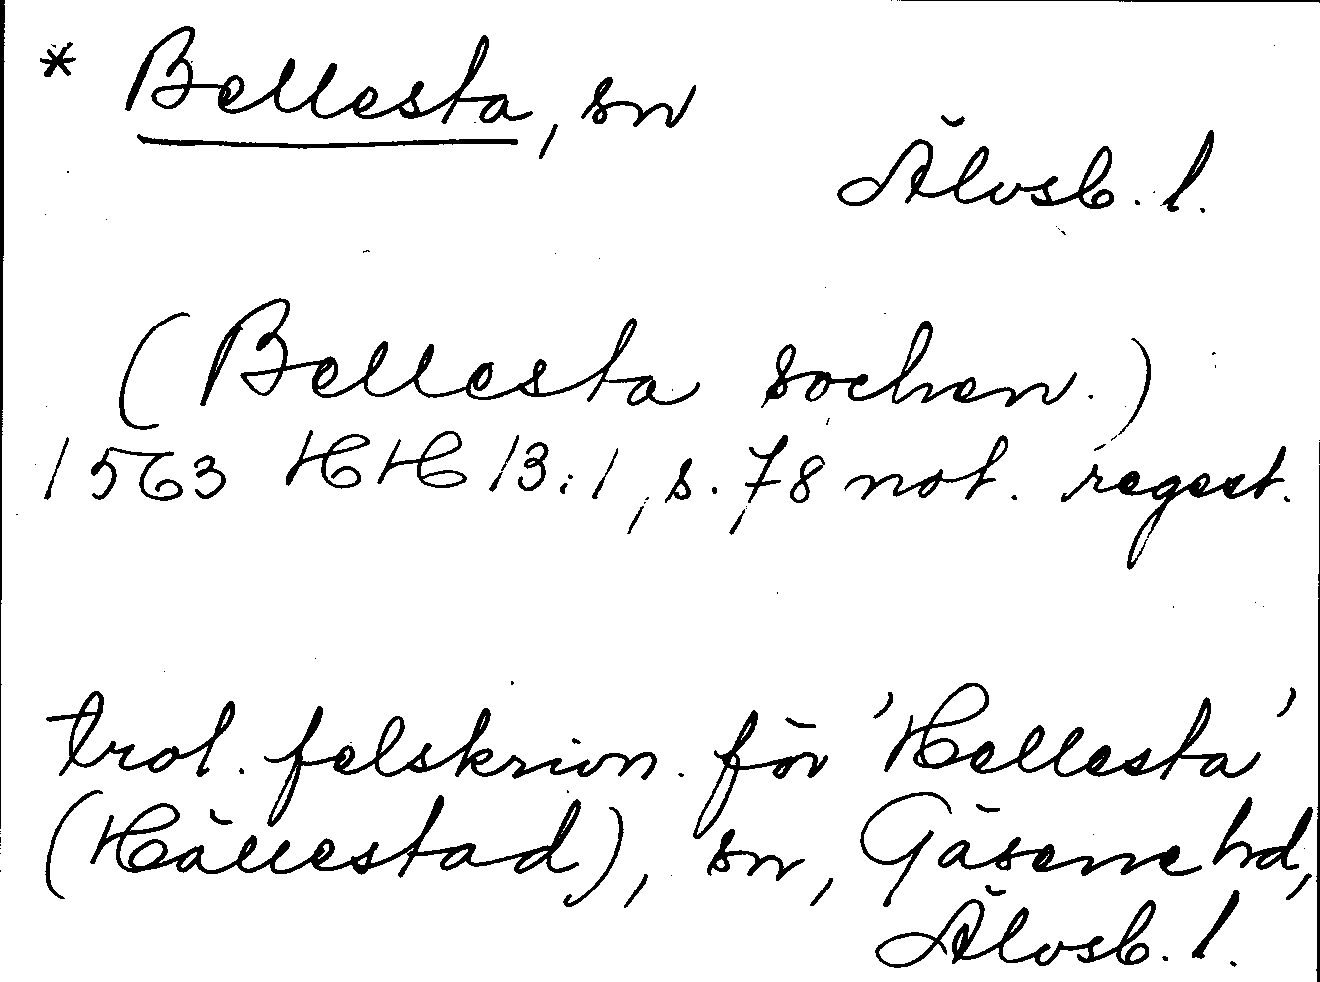 * Bellesta, sn
Älvsb. l.
(Bellesta sochen.)
1563 HH 13:1, s. 78 not. regest.
trol. felskrivn. för 'Hellesta'
(Hällestad), sn, Gäsene hd,
Älvsb. l.